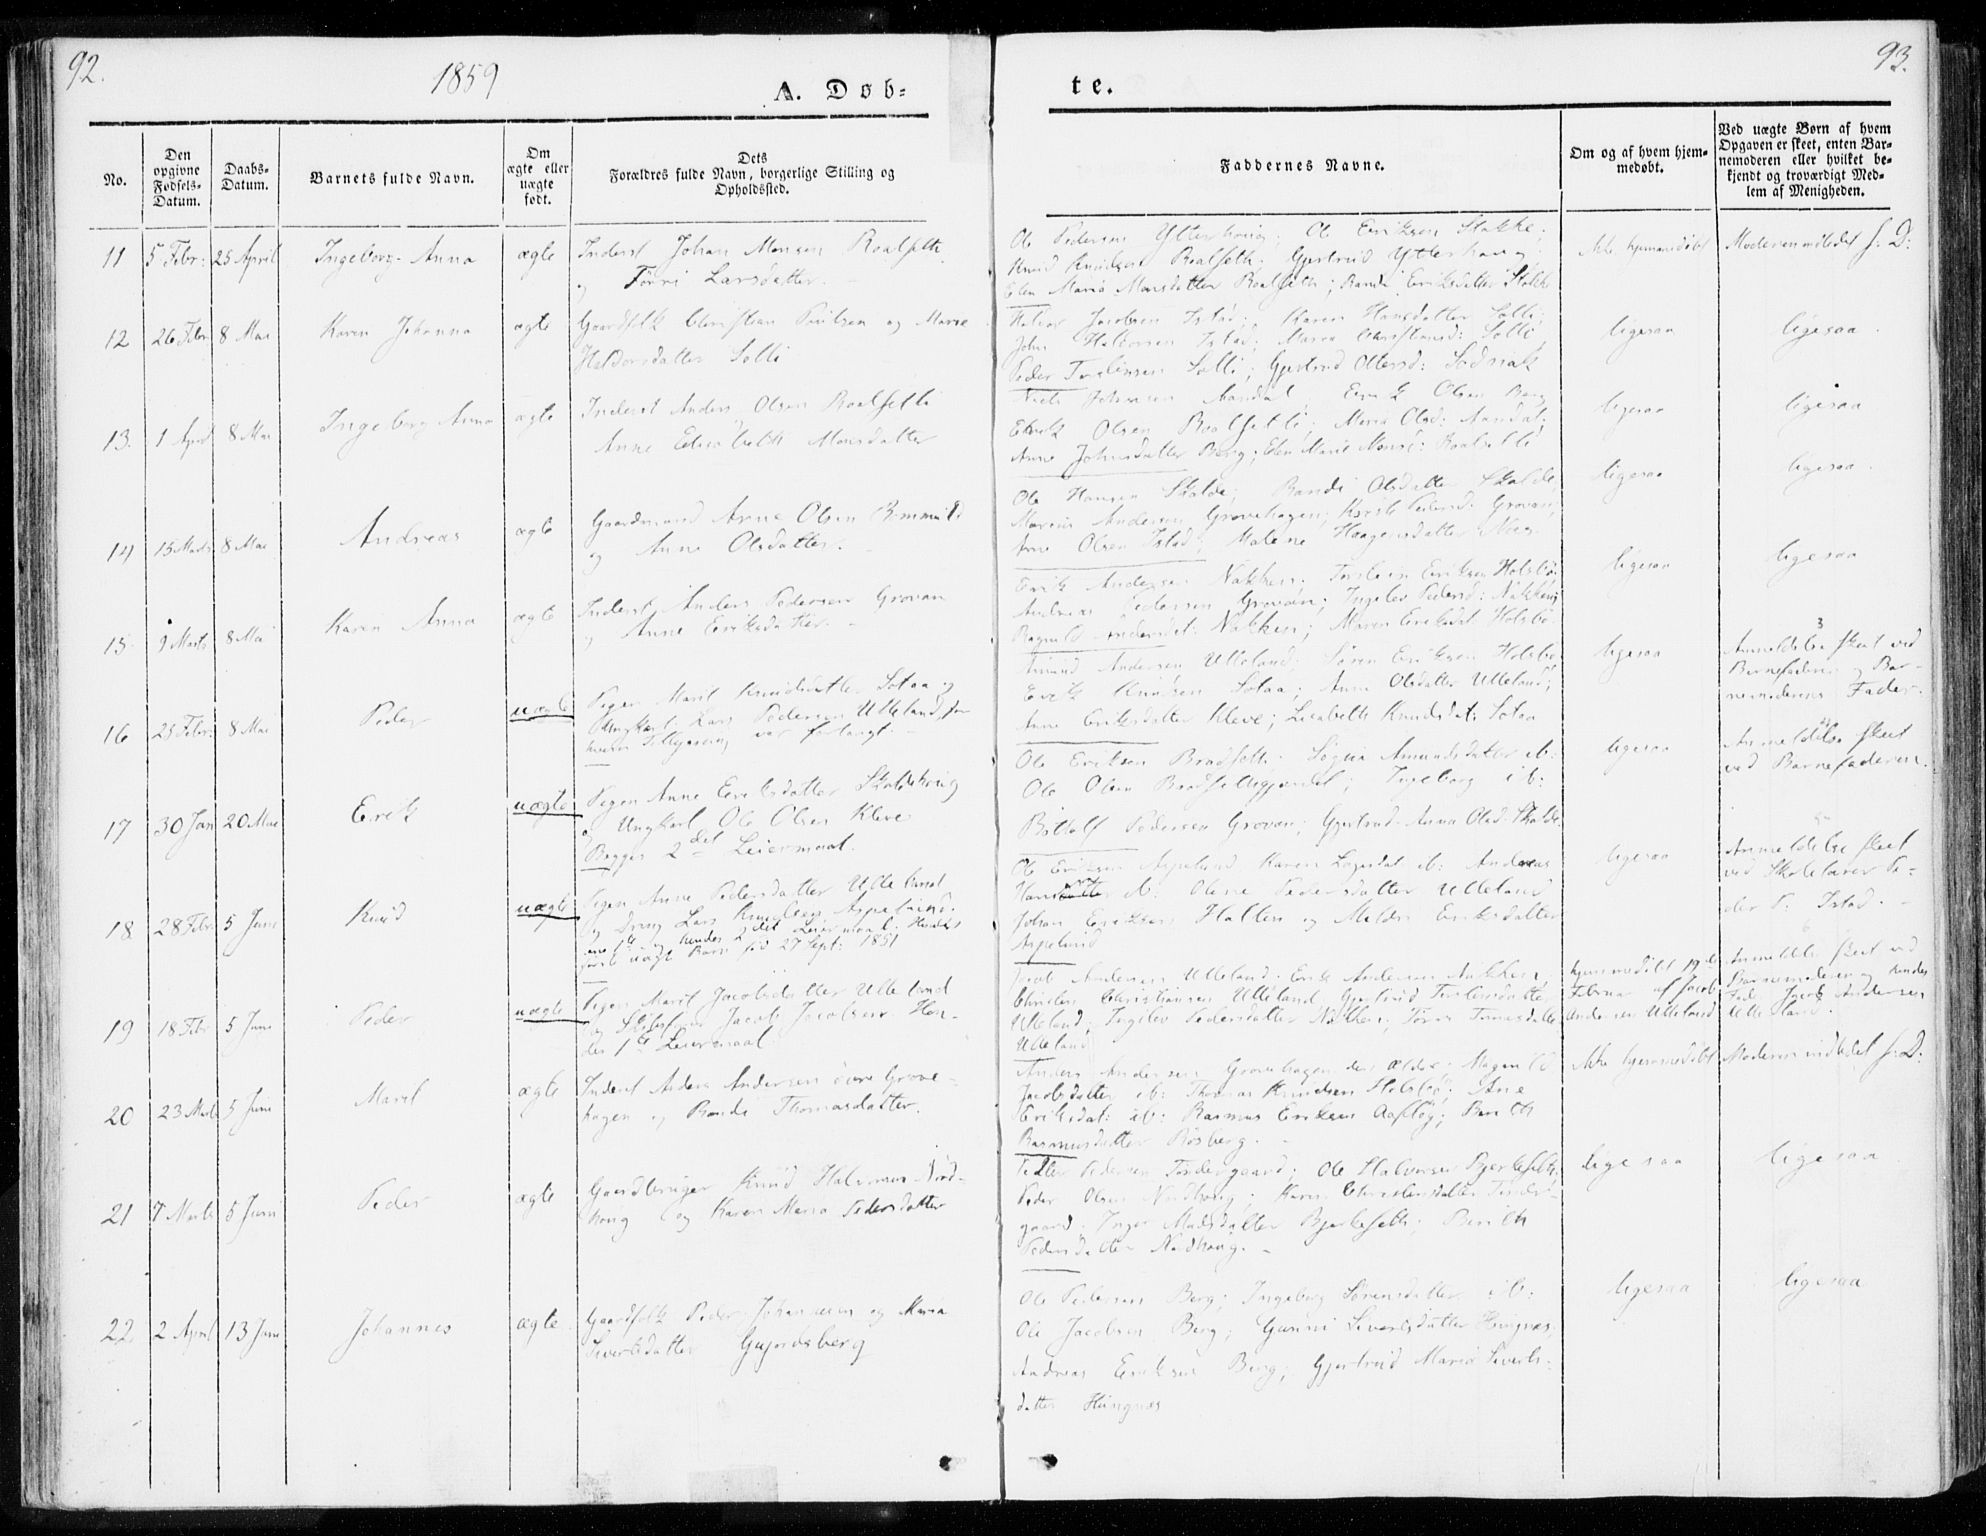 92.
1859
A. Døb-
te.
93.
No.
Den opgivne Fødsels-Datum.
Daabs-Datum.
Barnets fulde Navn.
Om ægte eller uægte født.
Dets
Forældres fulde Navn, borgerlige Stilling og
Opholdssted.
Faddernes Navne.
Om og af hvem hjem-
medøbt.
Ved uægte Børn af hvem
Opgaven er skeet, enten Bar-
nemoderen eller hvilket be-
kjendt og troværdigt Med-
lem af Menigheden.
11 5 Febr: 25 April Ingeborg Anna ægte Inderst Johan Monsen Roalseth
og Larsdatter.
Ole Pedersen Ytterhoug; Ole Eriksen Stokke;
Knud Knudsen Roalseth; Gjertrud Ytterhaug;
Elen Maria Monsdatter Roalseth; Randi Eriksdatter Stokke
ikke hjemmedøbt
Moderen indledet s: D:
12 26 Febr 8 Mai Karen Johanna ægte Gaardfolk Christian Paulsen og Maren
Haldorsdatter Solli
Jacobsen Istad; Karen Hansdatter Solli;
John Halvorsen Istad; Maren Christiansd: Solli,
Peder Solli; Gjertrud Olsend:
ligesaa
ligesaa
13. 1 April 8 Mai Ingeborg Anna ægte Inderst Anders Olsen Roalseth
Anne Elisabeth Monsdatter
Niels Johnsen Aandal, Erik Olsen Berg
Erik Olsen Roalseth; Maria Olsd: Aandal;
Anne Johnsdatter Berg; Elen Marie Monsd: Roalseth
ligesaa
ligesaa
14 15 Marts 8 Mai Andreas ægte Gaardmand Arne Olsen
og Anne Olsdatter.
Ole Hansen Skolde; Randi Olsdatter Skolde,
Andersen Grovehagen; Pedersd: Grovan;
Arne Olsen Istad; Malene Haagensdatter
ligesaa
ligesaa.
15 9 Marts 8 Mai Karen Anna ægte Inderst Anders Pedersen Grovan
og Anne Eriksdatter.
Erik Andersen Nakken; Torstein Eriksen Holsbø.
Andreas Pedersen Grovan; Ingelev Pedersd: Nakken;
Ragnild Andersdat: Nakken; Maren Eriksdat Holsbø
ligesaa
ligesaa
16 25 Febr: 8 Mai Peder uægte Pigen Marit Knudsdatter Sotaa og
Ungkarl Lars Pedersen Ulleland, for
hvem Tillysning var forlangt.
Amund Andersen Ulleland; Søren Eriksen Holsbø
Erik Knudsen Sotaa; Anne Olsdatter Ulleland;
Anne Eriksdatter Kleve; Lisabeth Knudsdat: Sotaa
ligesaa
Anmeldelse skeet ved
Barnefaderen og Bar-
nemoderens Fader.
17 30 Jan 20 Mai Erik uægte Pigen Anne Eriksdatter Skoldehoug
og Ungkarl Ole Olsen Kleve
Begges 2det Leiermaal.
Ole Eriksen Bradseth. Amundsdatter ib:
Ole Olsen; Ingeborg ib:
Pedersen Grovan; Gjertrud Anna Olsd: Skolde
ligesaa
Anmeldelse skeet
ved Barnefaderen.
18 28 Febr 5 Juni Knud uægte Pigen Anne Pedersdatter Ulleland
og Dreng Lars Knudsen Aspelund.
1te og hendes 2det Leiermaal. Hendes
første uægte Barn fød 27 Sept: 1851
Ole Eriksen Aspelund Karen ib: Andreas
Hansen ib: Oline Pedersdatter Ulleland
Johan Eriksen Hallen og Eriksdatter
Aspelund
ligesaa
Anmeldelse skeet
ved Skolelærer Pe-
der P: Istad.
19 18 Febr 5 Juni Peder uægte Pigen Marit Jacobsdatter Ulleland
og Jacob Jacobsen. Hen-
des 1te Leiermaal.
Jacob Andersen Ulleland. Erik Andersen Nakken
Christen Christiansen Ulleland Gjertrud
Ulleland; Ingelev Pedersdatter Nakken;
Ulleland
hjemmedøbt 19de
Februar af Jacob
Andersen Ulleland
Anmeldelse skeet ved
Barnemoderen og hendes
Fader Jacob Andersen
Ulleland.
20 23 Marts 5 Juni Marit ægte Inderst Anders Andersen øvre Grove-
hagen og Randi Thomasdatter.
Anders Andersen Grovehagen den ældre; Magnild
Jacobsdatter ib: Thomas Knudsen Holsbø; Ane
Eriksdat: ib: Rasmus Eriksen; Berith
Rasmusdatter Røsberg.
ikke hjemmedøbt
Moderen indledet s: D:
21 7 Marts 5 Juni Peder ægte Gaardbruger Knud Halvorsen Nord-
houg og Karen Maria Pedersdatter
Peder Pedersen Tondergaard; Ole Halvorsen Bjerkeseth;
Peder Olsen Nordhoug; Karen Christensdatter Tonder-
gaard; Inger Madsdatter Bjerkeseth; Berith
Pedersdatter Nordhoug.
ligesaa
ligesaa
22. 2 April 13 Juni Johannes ægte Gaardfolk Peder Johannesen og Maria
Siverts datter Gujordsberg
Ole Pedersen Berg; Ingeborg Sørensdatter ib:
Ole Jacobsen Berg; Gunni Sivertsdatter Hungnæs,
Andreas Eriksen Berg; Gjertrud Maria Siverts-
datter Hungnæs
ligesaa
ligesaa